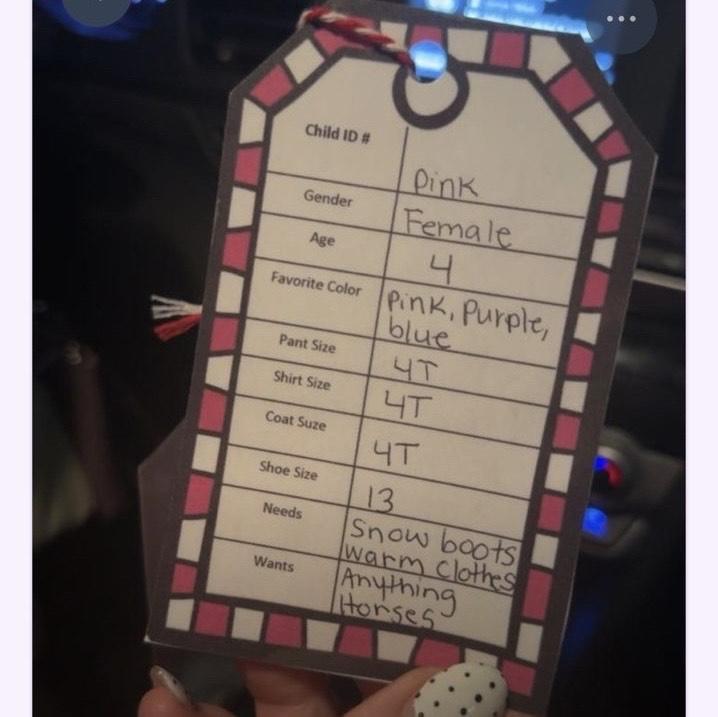 Child ID # Pink
Gender Female
Age 4
Favorite Color Pink, Purple,
blue
Pant Size 4T
Shirt Size 4T
Coat Suze 4T
Shoe Size 13
Needs Snow boots
warm clothes
Wants Anything
Horses